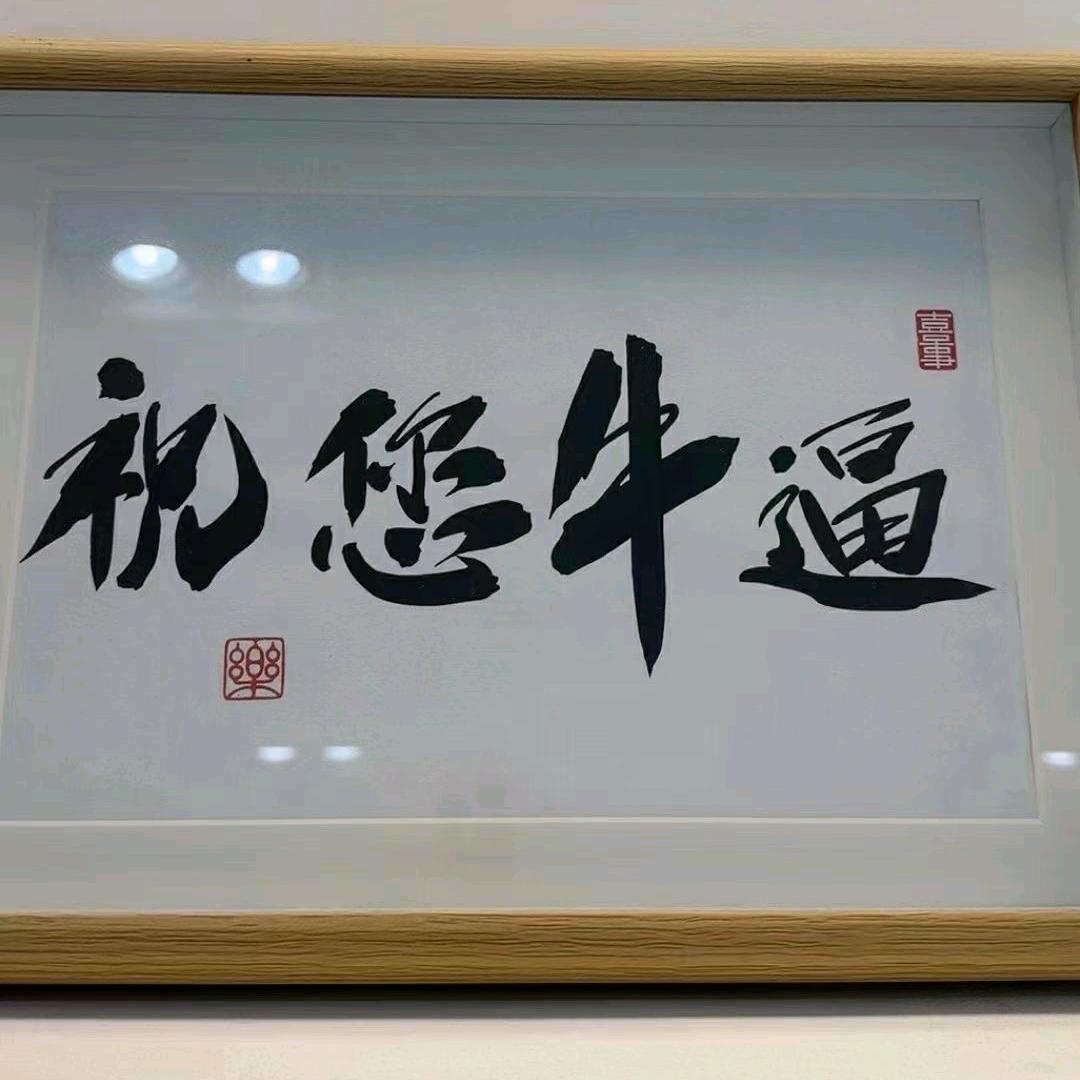 祝您牛逼
喜事
樂